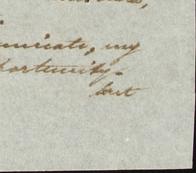 municate, my
portunity.
but